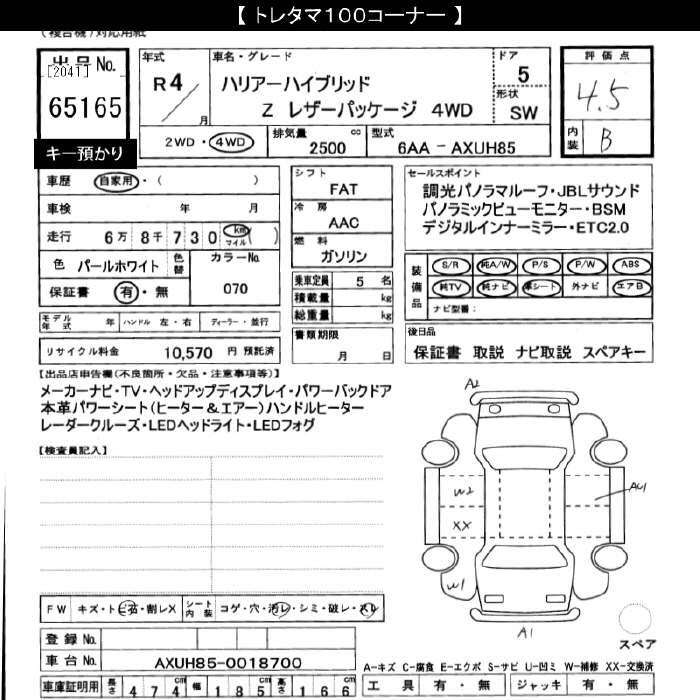 【 トレタマ100コーナー 】
出品No.
[2041]
65165
キー預かり
年式
R4
月
車名・グレード
ハリアーハイブリッド
Z レザーパッケージ 4WD
ドア
5
形状
SW
評価点
4.5
内装
B
2WD・4WD
排気量
2500
cc
型式
6AA-AXUH85
車歴
自家用・( )
車検 年 月
走行 6万8千730 km マイル ( )
色 パールホワイト
色替
カラーNo.
070
保証書 有・無
シフト
FAT
冷房
AAC
燃料
ガソリン
乗車定員 5 名
積載量 kg
総重量 kg
セールスポイント
調光パノラマルーフ・JBLサウンド
パノラミックビューモニター・BSM
デジタルインナーミラー・ETC2.0
装備品
S/R 純A/W P/S P/W ABS
純TV 純ナビ 革シート 外ナビ エアB
ナビ型番:
モデル年式 年 ハンドル 左・右 ディーラー・並行
リサイクル料金 10,570 円 預託済
書類期限
月 日
後日品
保証書 取説 ナビ取説 スペアキー
【出品店申告欄(不良箇所・欠品・注意事項等)】
メーカーナビ・TV・ヘッドアップディスプレイ・パワーバックドア
本革パワーシート(ヒーター&エアー)ハンドルヒーター
レーダークルーズ・LEDヘッドライト・LEDフォグ
【検査員記入】
A2
W2
XX
AU1
W1
A1
スペア
FW キズ・トビ石・割レX
シート内装 コゲ・穴・汚レ・シミ・破レ・スレ
登録No.
車台No. AXUH85-0018700
車庫証明用 長さ 474 cm 幅 185 cm 高さ 166 cm
A-キズ C-腐食 E-エクボ S-サビ U-凹ミ W-補修 XX-交換済
工具 有・無 ジャッキ 有・無